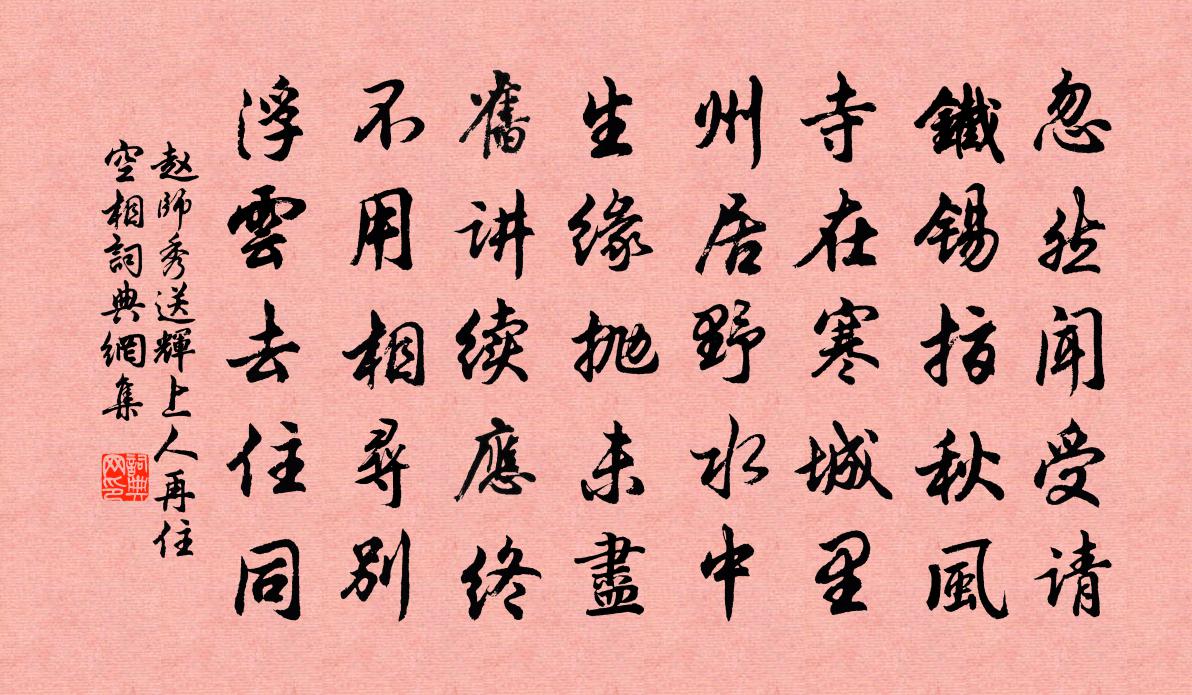 忽然聞受请
鐵錫指秋風
寺在寒城里
州居野水中
生緣抛未盡
舊讲续應终
不用相尋别
浮雲去住同
赵師秀送輝上人再住
空相詞典網集
詞典
网印